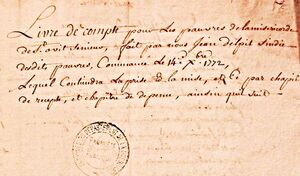 Livre de compte pour les pauvres de la misericorde
de St. avit senieur, fait par nous Jean delpit sindic
desdits pauvres, Commancé le 14e. Xbre. 1772,
Lequel Contiendra la prise & la mise, et par chapit
de recepte, et chapitre de depense, ainsin quil suit